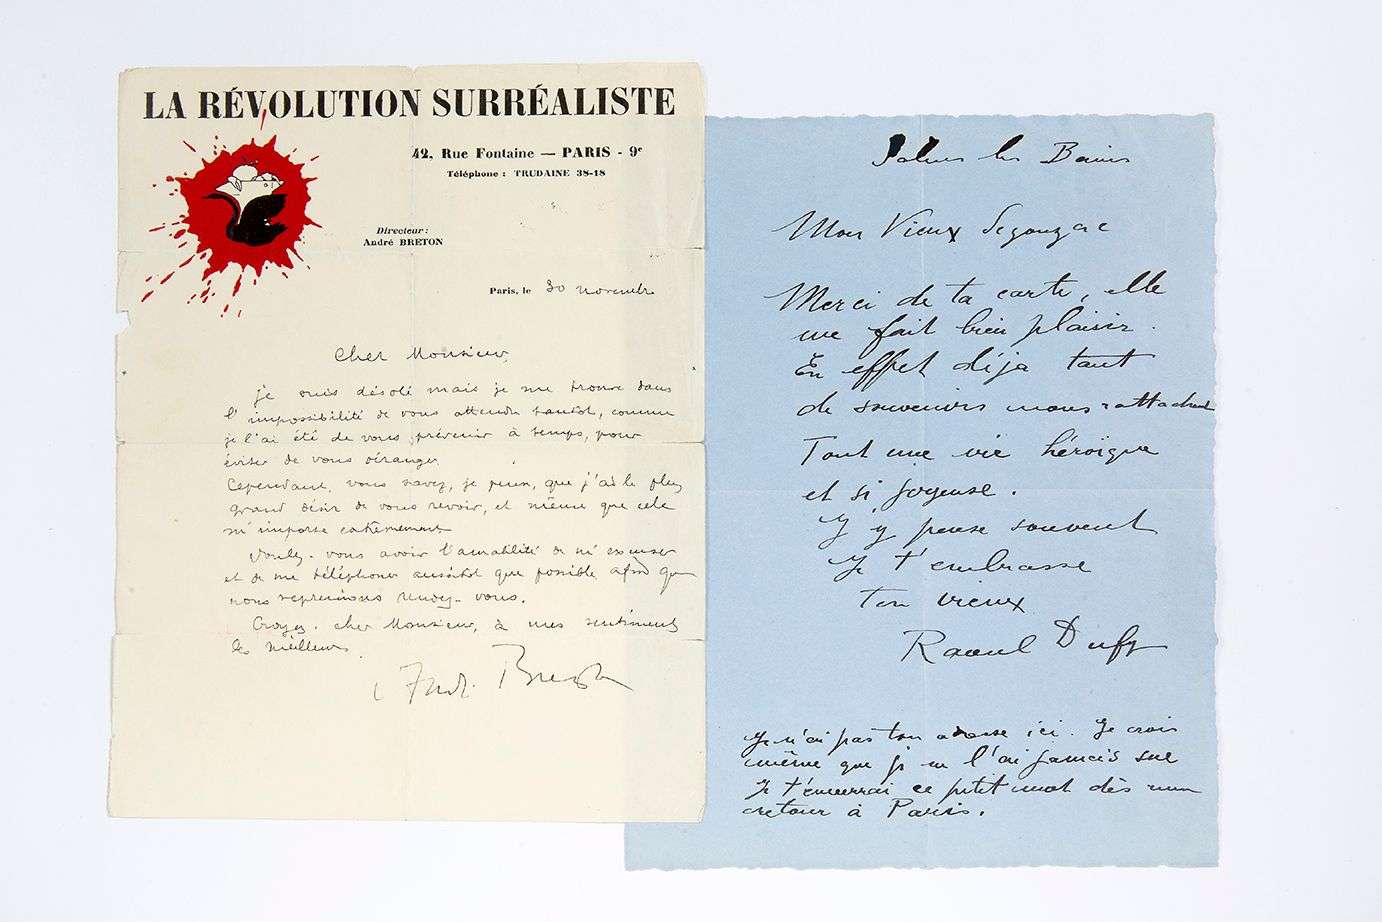 LA RÉVOLUTION SURRÉALISTE
42, Rue Fontaine — PARIS - 9e
Téléphone : TRUDAINE 38-18
Directeur :
André BRETON
Paris, le 30 novembre
Cher Monsieur,
je suis désolé mais je me trouve dans
l'impossibilité de vous attendre tantôt, comme
je l'ai été de vous prévenir à temps, pour
éviter de vous déranger.
Cependant, vous savez, je pense, que j'ai le plus
grand désir de vous revoir, et même que cela
m'importe extrêmement.
Voulez-vous avoir l'amabilité de m'excuser
et de me téléphoner aussitôt que possible afin que
nous reprenions rendez-vous.
Croyez, cher Monsieur, à mes sentiments
les meilleurs.
André Breton
les Bains
Mon Vieux Segonzac
Merci de ta carte, elle
me fait bien plaisir.
En effet déja tant
de souvenirs nous rattachent
Tout une vie héroïque
et si joyeuse.
J'y pense souvent
Je t'embrasse
ton vieux
Raoul Dufy
Je n'ai pas ton adresse ici. Je crois
même que je ne l'ai jamais sue
Je t'enverrai ce petit mot dès mon
retour à Paris.